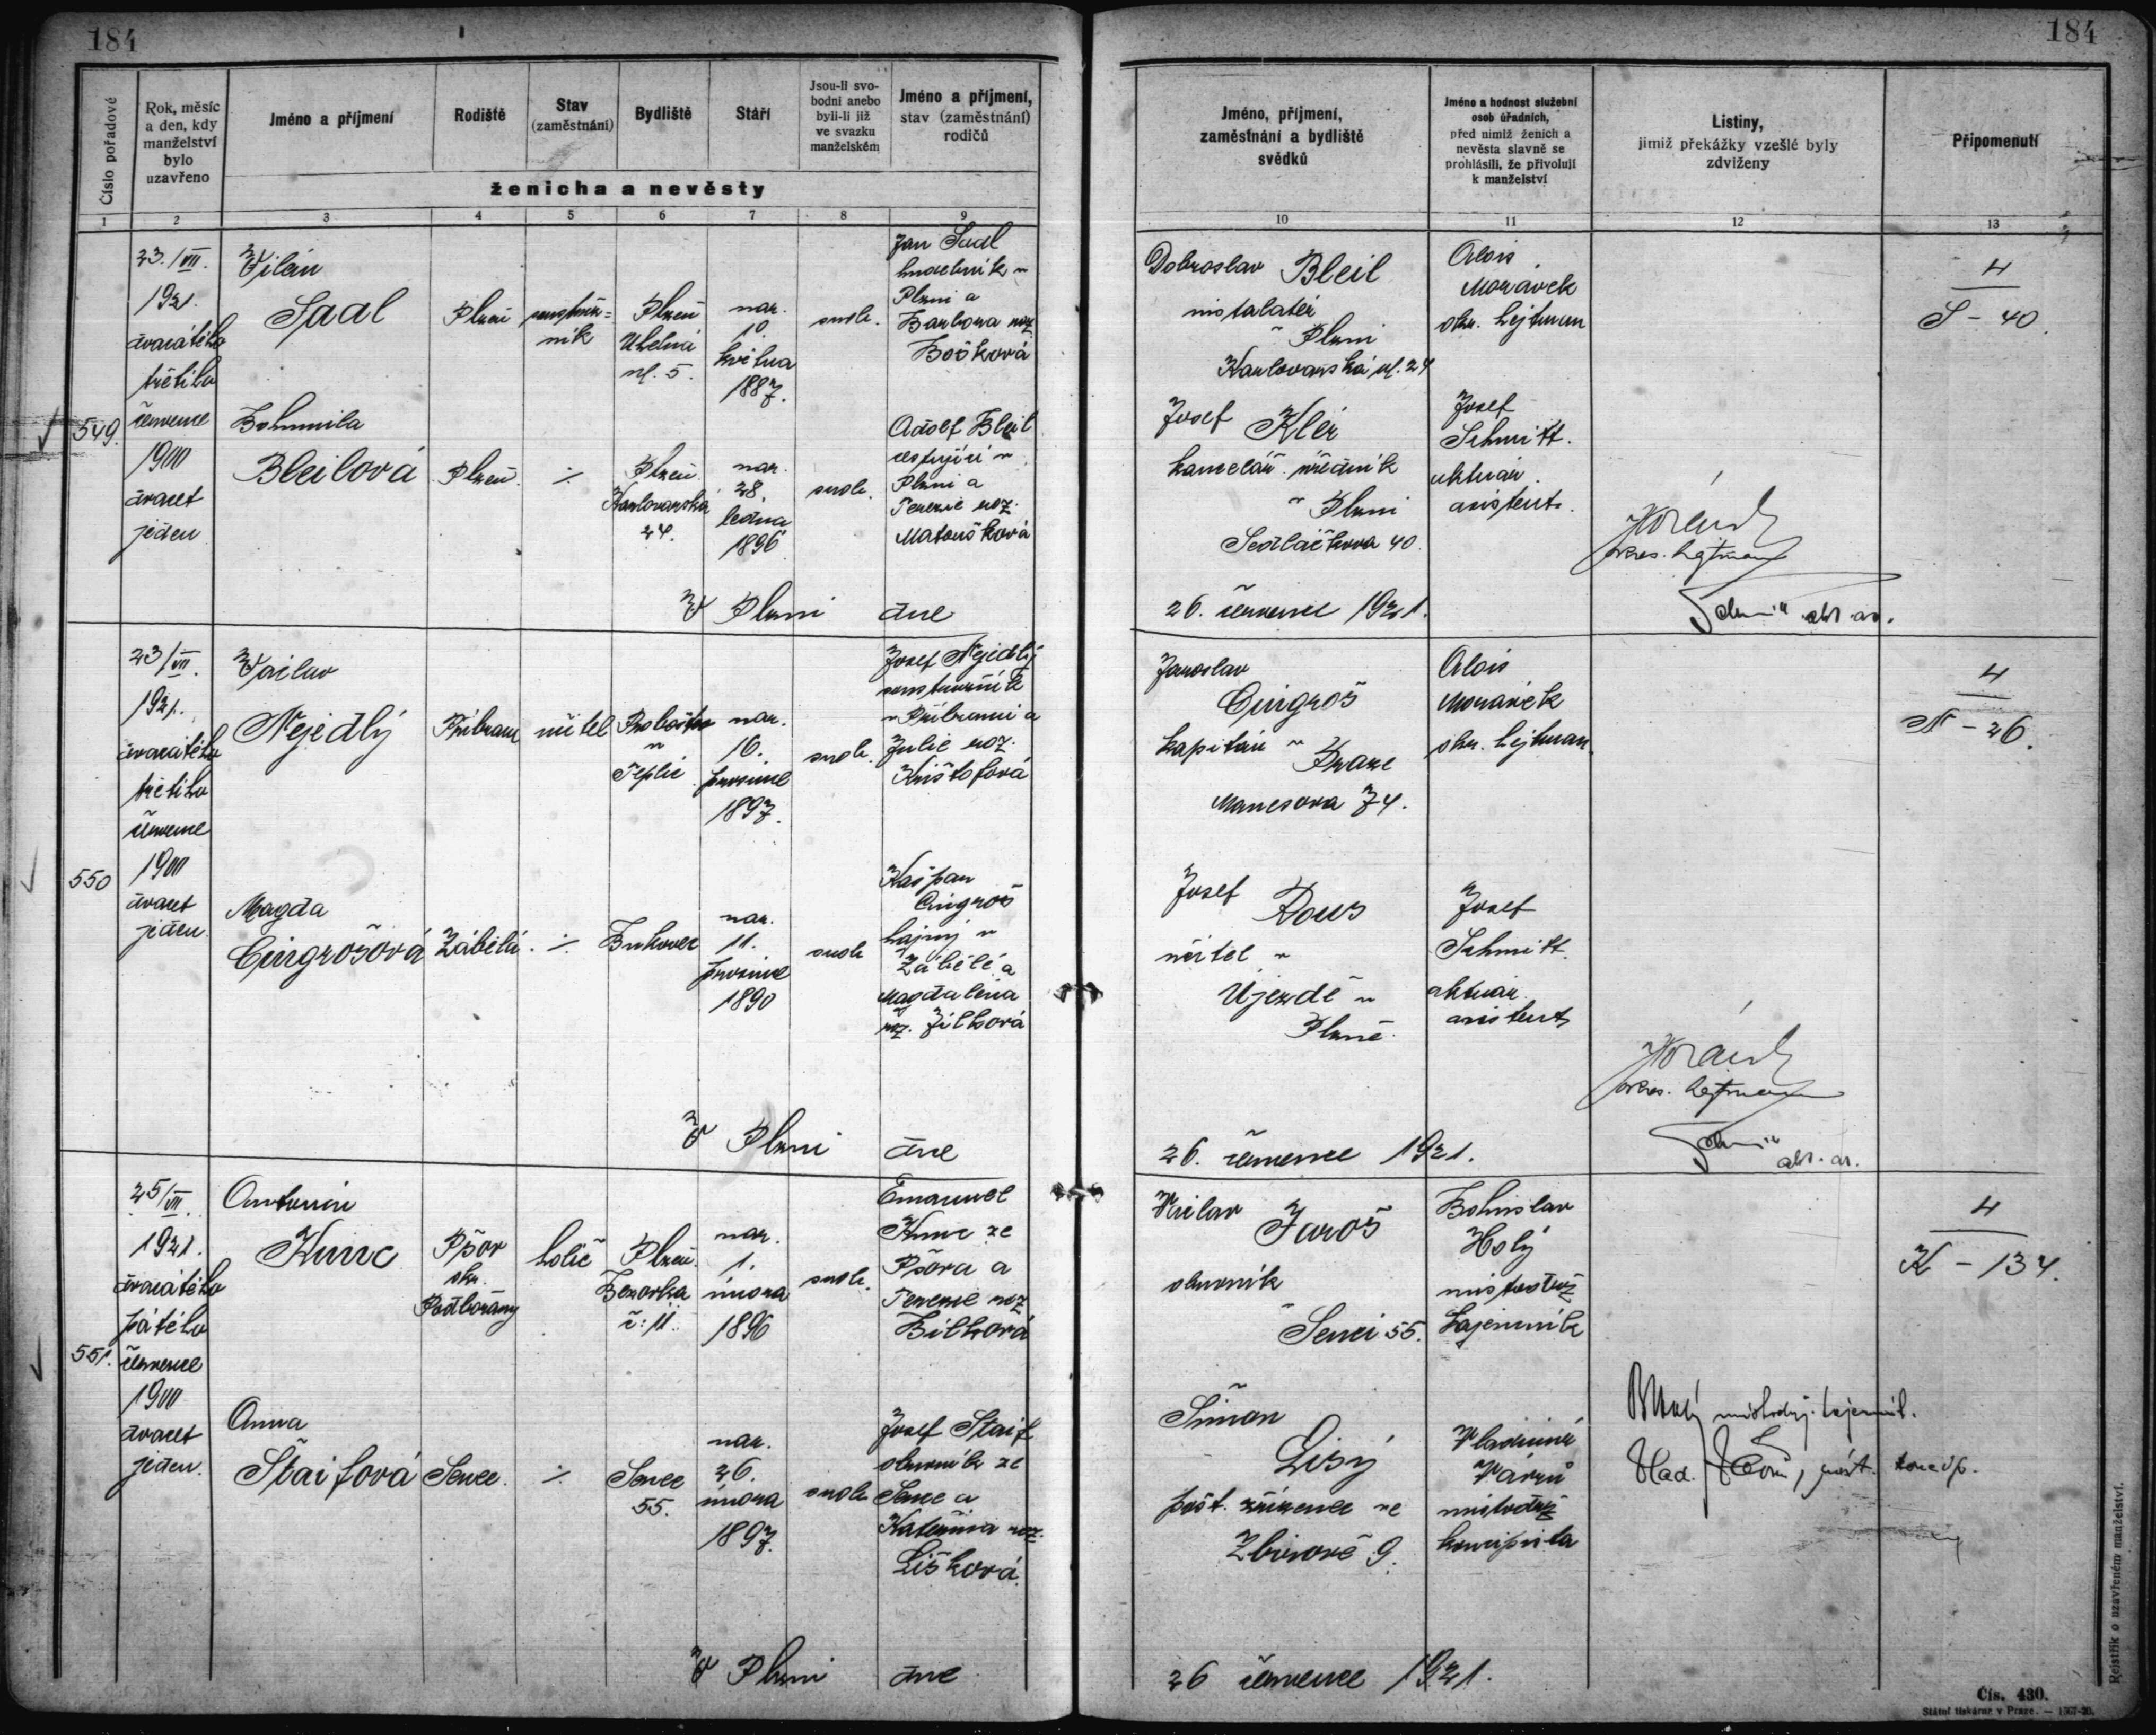 184
184
Číslo pořadové
Rok, měsíc
a den, kdy
manželství
bylo
uzavřeno
Jméno a příjmení
Rodiště
Stav
(zaměstnání)
Bydliště
Stáří
Jsou-li svo-
bodni anebo
byli-li již
ve svazku
manželském
Jméno a příjmení,
stav (zaměstnání)
rodičů
ženicha a nevěsty
Jméno, příjmení,
zaměstnání a bydliště
svědků
Jméno a hodnost služební
osob úřadních,
před nimiž ženich a
nevěsta slavně se
prohlásili, že přivolují
k manželství
Listiny,
jimiž překážky vzešlé byly
zdviženy
Připomenutí
1 2 3 4 5 6 7 8 9
10 11 12 13
549.
23./VII.
1921.
dvacátého
třetího
července
1900
dvacet
jeden
Vilém
Sadl
Plzeň
Plzeň
Uhelná
ul. 5.
nar.
10
května
1887.
svob.
Jan Sadl
hudebník v
Plzni a
Barbora roz.
Bošková
Bohumila
Bleilová
Plzeň.
÷
Plzeň
Karlovarská
24.
nar.
28.
ledna
1896
svob.
Adolf Bleil
cestující v
Plzni a
Terezie roz.
Matoušková
V Plzni dne
Dobroslav Bleil
instalatér
v Plzni
Karlovarská ul. 24
Josef Klér
kancelář. úředník
v Plzni
Sedláčkova 40.
Alois
Morávek
okr. hejtman
Josef
Schmitt.
aktuár.
asistent.
okres. hejtman
26. července 1921.
4
S - 40.
550
23/VII.
1921.
dvacátého
třetího
července
1900
dvacet
jeden.
Václav
Nejedlý
Příbram
učitel
Proboštov
u
Teplic
nar.
16.
prosince
1897.
svob.
Josef Nejedlý
v Příbrami a
Julie roz.
Krištofová
Magda
Cingrošová
Zábělá.
÷
Bukovec
nar.
11.
prosince
1890
svob
Kašpar
Cingroš
hajný v
Zábělé a
Magdalena
roz. Jílková
V Plzni dne
Jaroslav
Cingroš
kapitán v
Praze
Manesova 74.
Josef Rous
učitel v
Újezdě u
Plzně.
Alois
Morávek
okr. hejtman
Josef
Schmitt.
aktuár.
asistent
okres. hejtman
26. července 1921.
4
N - 26.
551.
25/VII.
1921.
dvacátého
pátého
července
1900
dvacet
jeden.
Antonín
Kunc
Pšov
okr.
Podbořany
holič
Plzeň.
Bezovka
č: 11.
nar.
1.
února
1896
svob.
Emanuel
Kunc ze
Pšova a
Terezie roz
Bílková
Anna
Štaifová
Senec.
÷
Senec
55.
nar.
26.
února
1897.
svob
Josef Štaif
obuvník ze
Sence a
Kateřina roz.
Lišková.
V Plzni dne
Václav Jaroš
obuvník
v Senci 55.
Šimon
Lisý
pošt. zřízenec ve
Zbirově 9.
Bohuslav
Holý
místodrž
tajemník
Vladimír
místodrž
koncipista
26 července 1921.
4
K - 134.
Rejstřík o uzavřeném manželství.
Čís. 430.
Státní tiskárna v Praze. — 1367-20.